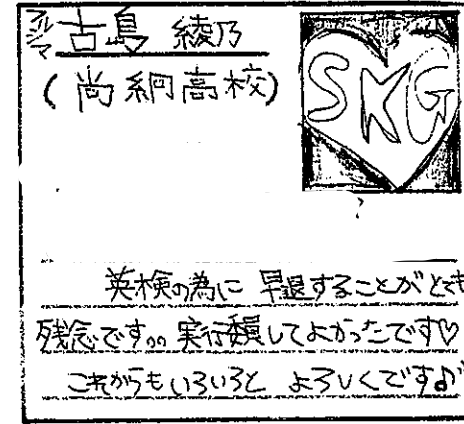 フルシマ
古島 綾乃
(尚絅高校)
SKG
英検の為に 早退することがとても
残念です。。実行委員してよかったです♡
これからもいろいろと よろしくです♪